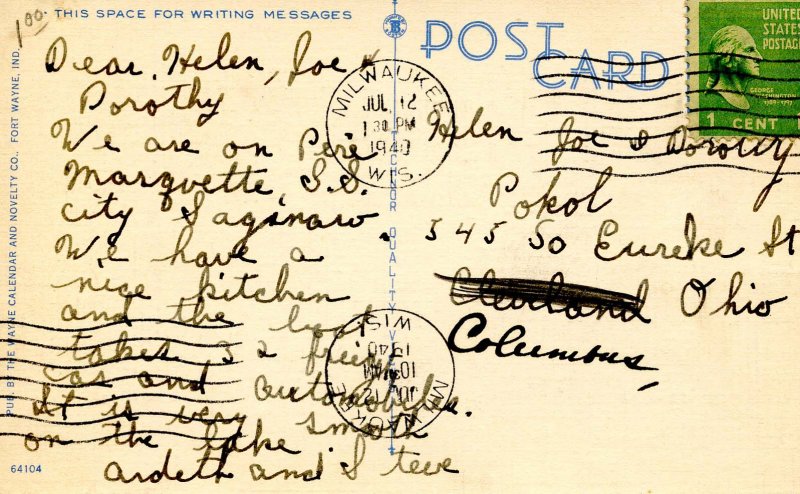 1.00
THIS SPACE FOR WRITING MESSAGES
POST CARD
UNITED
STATES
POSTAGE
GEORGE
WASHINGTON
1 CENT
MILWAUKEE
JUL 12
1 30 PM
1940
WIS.
Dear, Helen, Joe &
Dorothy
We are on Pere
Marquette, S.S.
city Saginaw.
We have a
nice kitchen
and the boat
takes 32 freight
cas and automobiles.
It is very smooth
on the lake.
Ardeth and Steve
Helen Joe & Dorothy
Pokol
545 So Eureke St
Cleveland Ohio
Columbus
MILWAUKEE
JUL 12
10 AM
1940
WIS
PUB. BY THE WAYNE CALENDAR AND NOVELTY CO., FORT WAYNE, IND.
TICHNOR QUALITY VIEWS
64104